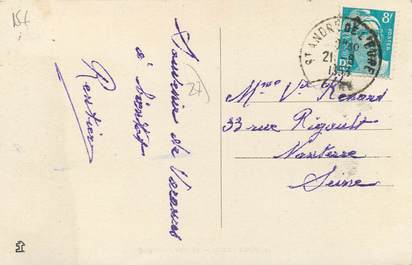 154
Souvenir de Vacances
à bientôt
27
8F
POSTES
ST ANDRÉ DE L'EURE
21
Mme Ve Renard
33 rue Rigault
Nanterre
Seine